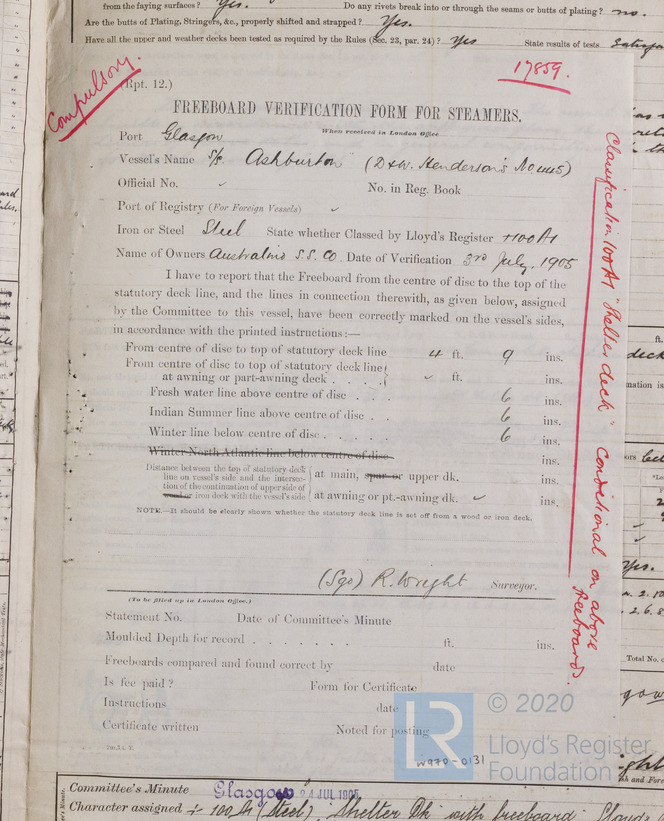 from the faying surfaces? Yes. Do any rivets break into or through the seams or butts of plating? no.
Are the butts of Plating, Stringers, &c., properly shifted and strapped? Yes.
Have all the upper and weather decks been tested as required by the Rules (Sec. 23, par. 24)? Yes State results of tests
Compulsory.
(Rpt. 12.)
17859.
FREEBOARD VERIFICATION FORM FOR STEAMERS.
When received in London Office
Port Glasgow
Vessel's Name S/s. Ashburton (D & W. Henderson's No 445)
Official No. ✓ No. in Reg. Book
Port of Registry (For Foreign Vessels) ✓
Iron or Steel Steel State whether Classed by Lloyd's Register +100A1
Name of Owners Australind S.S. Co. Date of Verification 3rd July. 1905
I have to report that the Freeboard from the centre of disc to the top of the
statutory deck line, and the lines in connection therewith, as given below, assigned
by the Committee to this vessel, have been correctly marked on the vessel's sides,
in accordance with the printed instructions:—
From centre of disc to top of statutory deck line 4 ft. 9 ins.
From centre of disc to top of statutory deck line
at awning or part-awning deck . . . ✓ ft. ins.
Fresh water line above centre of disc . . . 6 ins.
Indian Summer line above centre of disc . . 6 ins.
Winter line below centre of disc . . . . . 6 ins.
Winter North Atlantic line below centre of disc ins.
Distance between the top of statutory deck
line on vessel's side and the intersec-
tion of the continuation of upper side of
wood or iron deck with the vessel's side
at main, spar or upper dk. ins.
at awning or pt.-awning dk. ✓ ins.
NOTE.—It should be clearly shown whether the statutory deck line is set off from a wood or iron deck.
(Sgd) R. Wright Surveyor.
Classification 100A1 "Shelter deck" Conditional on above freeboard.
(To be filled up in London Office.)
Statement No. Date of Committee's Minute
Moulded Depth for record . . . . . . . ft. ins.
Freeboards compared and found correct by date
Is fee paid? Form for Certificate
Instructions date
Certificate written Noted for posting
W970-0131
LR
© 2020
Lloyd's Register
Foundation
Committee's Minute Glasgow 24 JUL 1905
Character assigned + 100A1 (Steel). Shelter Dk with freeboard